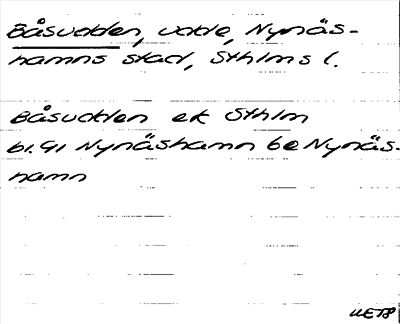 Båsudden, udde, Nynäs-
hamns stad, Sthlms l.
Båsudden ek Sthlm
bl. 91 Nynäshamn be Nynäs-
hamn